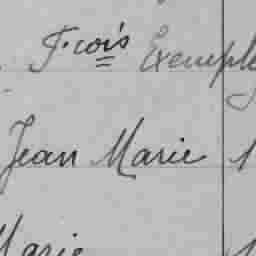 F.cois Exemple
Jean Marie 1
Marie